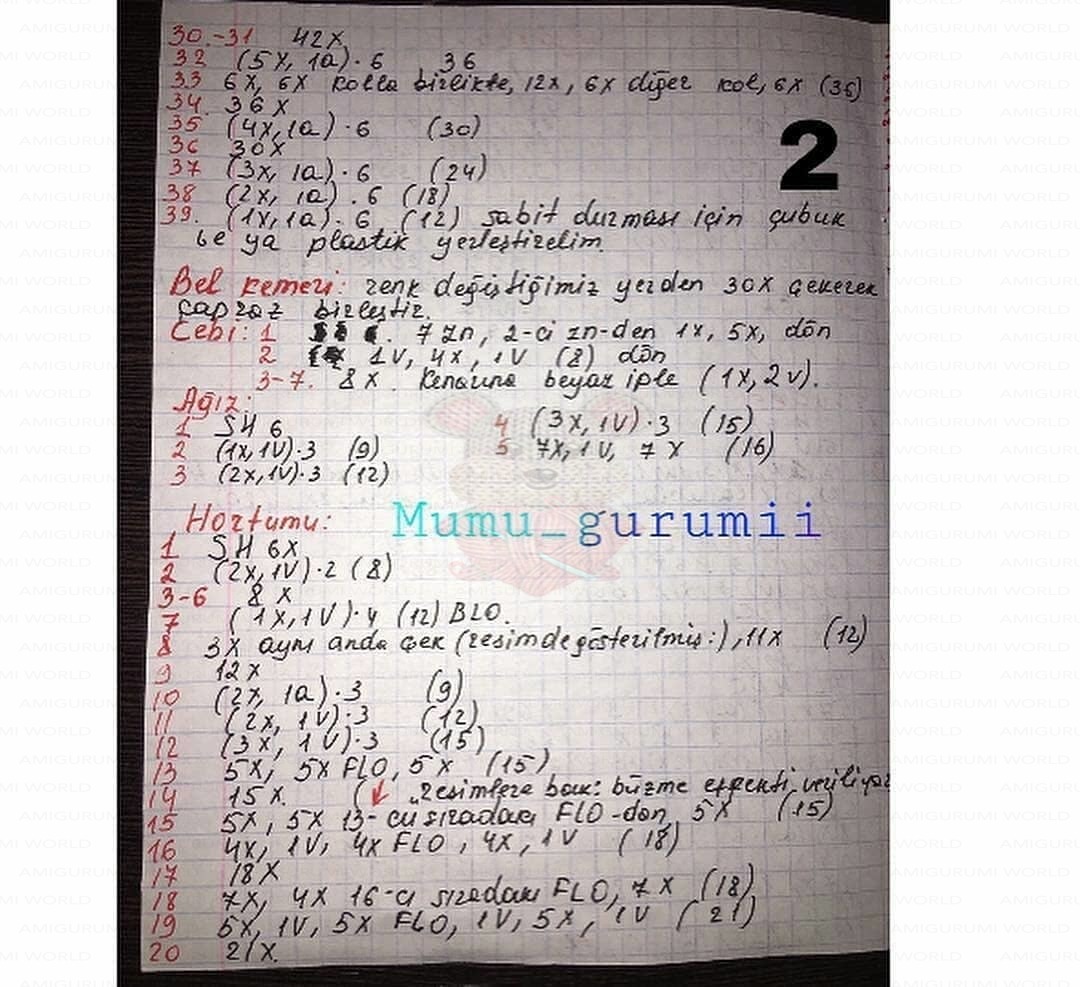 30.-31 42x
32 (5x, 1a)·6 36
33 6x, 6x kolla birlikte, 12x, 6x diğer kol, 6x (36)
34. 36 x
35 (4x, 1a)·6 (30)
36 30x
37 (3x, 1a)·6 (24)
38 (2x, 1a)·6 (18)
39. (1x, 1a)·6 (12) sabit durması için çubuk
ve ya plastik yerleştirelim.
2
Bel kemeri: renk değiştiğimiz yerden 30x çekerek
çapraz birleştir.
Cebi: 1 7 zn, 2-ci zn-den 1x, 5x, dön
2 1v, 4x, 1v (8) dön
3-7. 8x. Kenarına beyaz iple (1x, 2v).
Ağız:
1 SH 6
2 (1x, 1v)·3 (9)
3 (2x, 1v)·3 (12)
4 (3x, 1v)·3 (15)
5 7x, 1v, 7x (16)
Mumu_gurumii
Hortumu:
1 SH 6x
2 (2x, 1v)·2 (8)
3-6 8x
7 (1x, 1v)·4 (12) BLO.
8 3x aynı anda çek (resimde gösterilmiş:), 11x (12)
9 12x
10 (2x, 1a)·3 (9)
11 (2x, 1v)·3 (12)
12 (3x, 1v)·3 (15)
13 5x, 5x FLO, 5x (15)
14 15x. (↓ "resimlere bak: büzme effekti veriliyor
15 5x, 5x 13-cu sıradakı FLO-dan, 5x (15)
16 4x, 1v, 4x FLO, 4x, 1v (18)
17 18x
18 7x, 4x 16-cı sıradakı FLO, 7x (18)
19 5x, 1v, 5x FLO, 1v, 5x, 1v (21)
20 21x.
AMIGURUMI WORLD